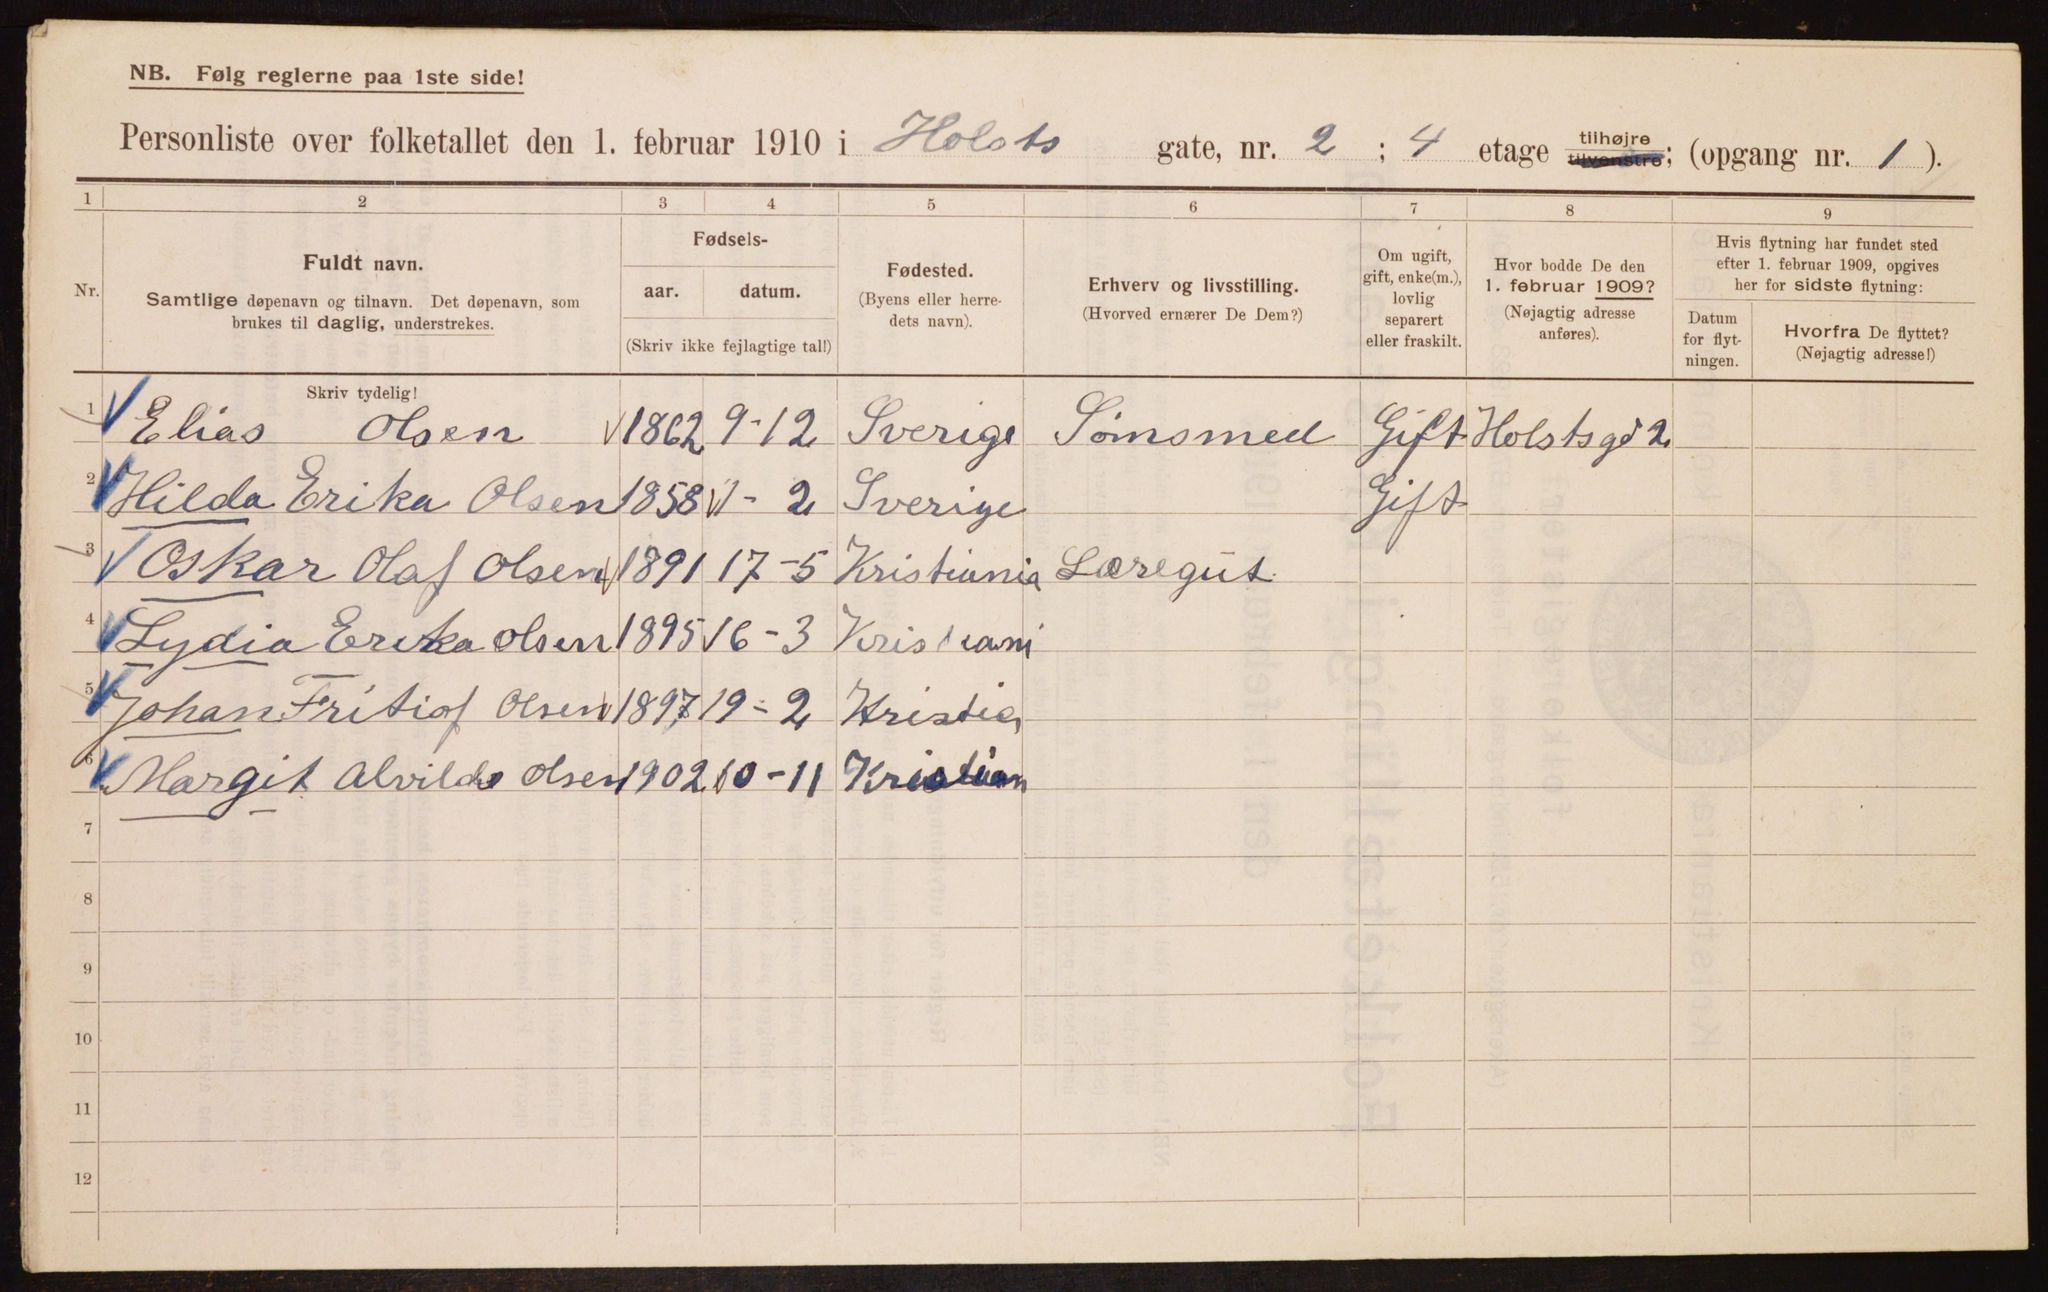 NB. Følg reglerne paa 1ste side!
Personliste over folketallet den 1. februar 1910 i Holsts gate, nr. 2 ; 4 etage tilhøjre tilvenstre; (opgang nr. 1 ).
1 2 3 4 5 6 7 8 9
Nr.
Fuldt navn.
Samtlige døpenavn og tilnavn. Det døpenavn, som
brukes til daglig, understrekes.
Fødsels-
aar. datum.
(Skriv ikke fejlagtige tal!)
Fødested.
(Byens eller herre-
dets navn).
Erhverv og livsstilling.
(Hvorved ernærer De Dem?)
Om ugift,
gift, enke(m.),
lovlig
separert
eller fraskilt.
Hvor bodde De den
1. februar 1909?
(Nøjagtig adresse
anføres).
Hvis flytning har fundet sted
efter 1. februar 1909, opgives
her for sidste flytning:
Datum
for flyt-
ningen.
Hvorfra De flyttet?
(Nøjagtig adresse!)
Skriv tydelig!
1 Elias Olsen 1862 9-12 Sverige Sömsmed Gift Holstsgd 2
2 Hilda Erika Olsen 1858 1-2 Sverige Gift
3 Oskar Olaf Olsen 1891 17-5 Kristiania Læregut
4 Lydia Erika Olsen 1895 16-3 Kristiani
5 Johan Fritiof Olsen 1897 19-2 Kristia
6 Margit Alvilde Olsen 1902 10-11 Kristian
7
8
9
10
11
12